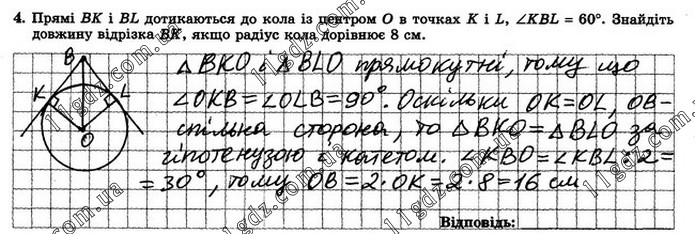 4. Прямі BK і BL дотикаються до кола із центром O в точках K і L, ∠KBL = 60°. Знайдіть
довжину відрізка BK, якщо радіус кола дорівнює 8 см.
B
K
L
O
△BKO і △BLO прямокутні, тому що
∠OKB=∠OLB=90°. Оскільки OK=OL, OB-
спільна сторона, то △BKO=△BLO за
гіпотенузою і катетом. ∠KBO=∠KBL:2=
=30°, тому OB=2·OK=2·8=16 см
Відповідь:
11gdz.com.ua